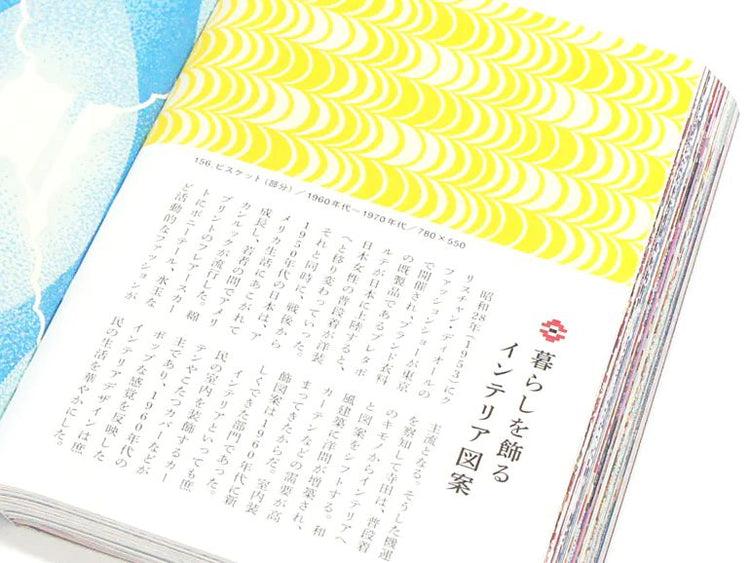 156. ビスケット（部分）／1960年代ー1970年代／780×550
暮らしを飾る
インテリア図案
昭和28年（1953）にク
リスチャン・ディオールの
ファッションショーが東京
で開催され、ブランド衣料
の既製品であるプレタポ
ルテが日本に上陸すると、
日本女性の普段着が洋装
へと移り変わっていった。
それと同時に、戦後から
1950年代の日本は、ア
メリカ生活にあこがれて
成長し、若者の間でアメリ
カンルックが流行した。綿
プリントのフレアースカー
トにポニーテール、水玉な
ど活動的なファッションが
主流となる。そうした機運
を察知して寺田は、普段着
のキモノからインテリアへ
と図案をシフトする。和
風建築に洋間が増築され、
カーテンなどの需要が高
まってきたからだ。室内装
飾図案は1960年代に新
しくできた部門であった。
インテリアといっても庶
民の室内を装飾するカー
テンやこたつカバーなどが
主であり、1960年代の
ポップな感覚を反映した
インテリアデザインは庶
民の生活を華やかにした。